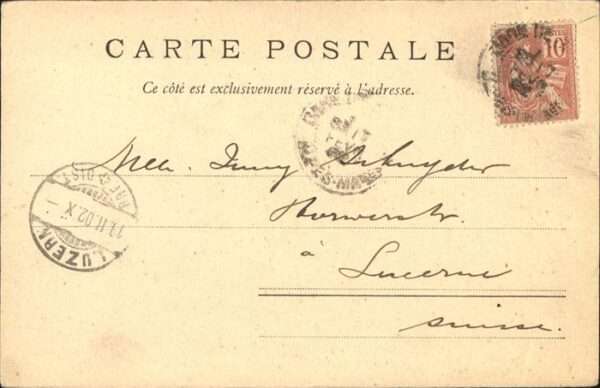 CARTE POSTALE
Ce côté est exclusivement réservé à l'adresse.
10
Melle. Jenny Schnyder
Horwerstr.
à
Lucerne
Suisse.
LUZERN
11.II.02.X